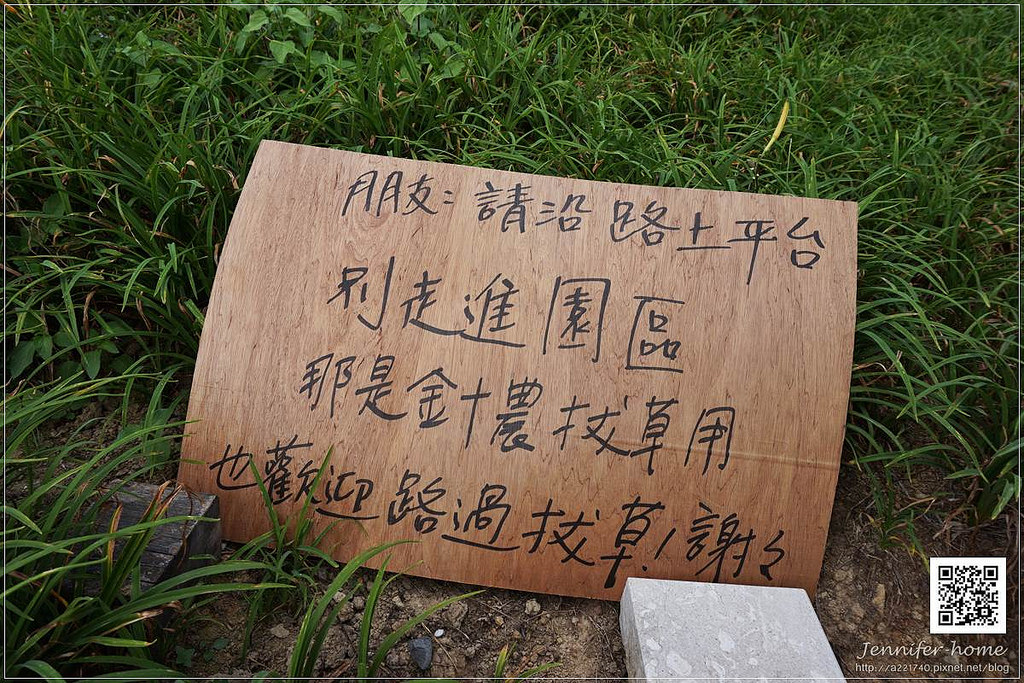 朋友：請沿路上平台
別走進園區
那是金針農拔草用
也歡迎路過拔草！謝々
Jennifer-home
http://a221740.pixnet.net/blog